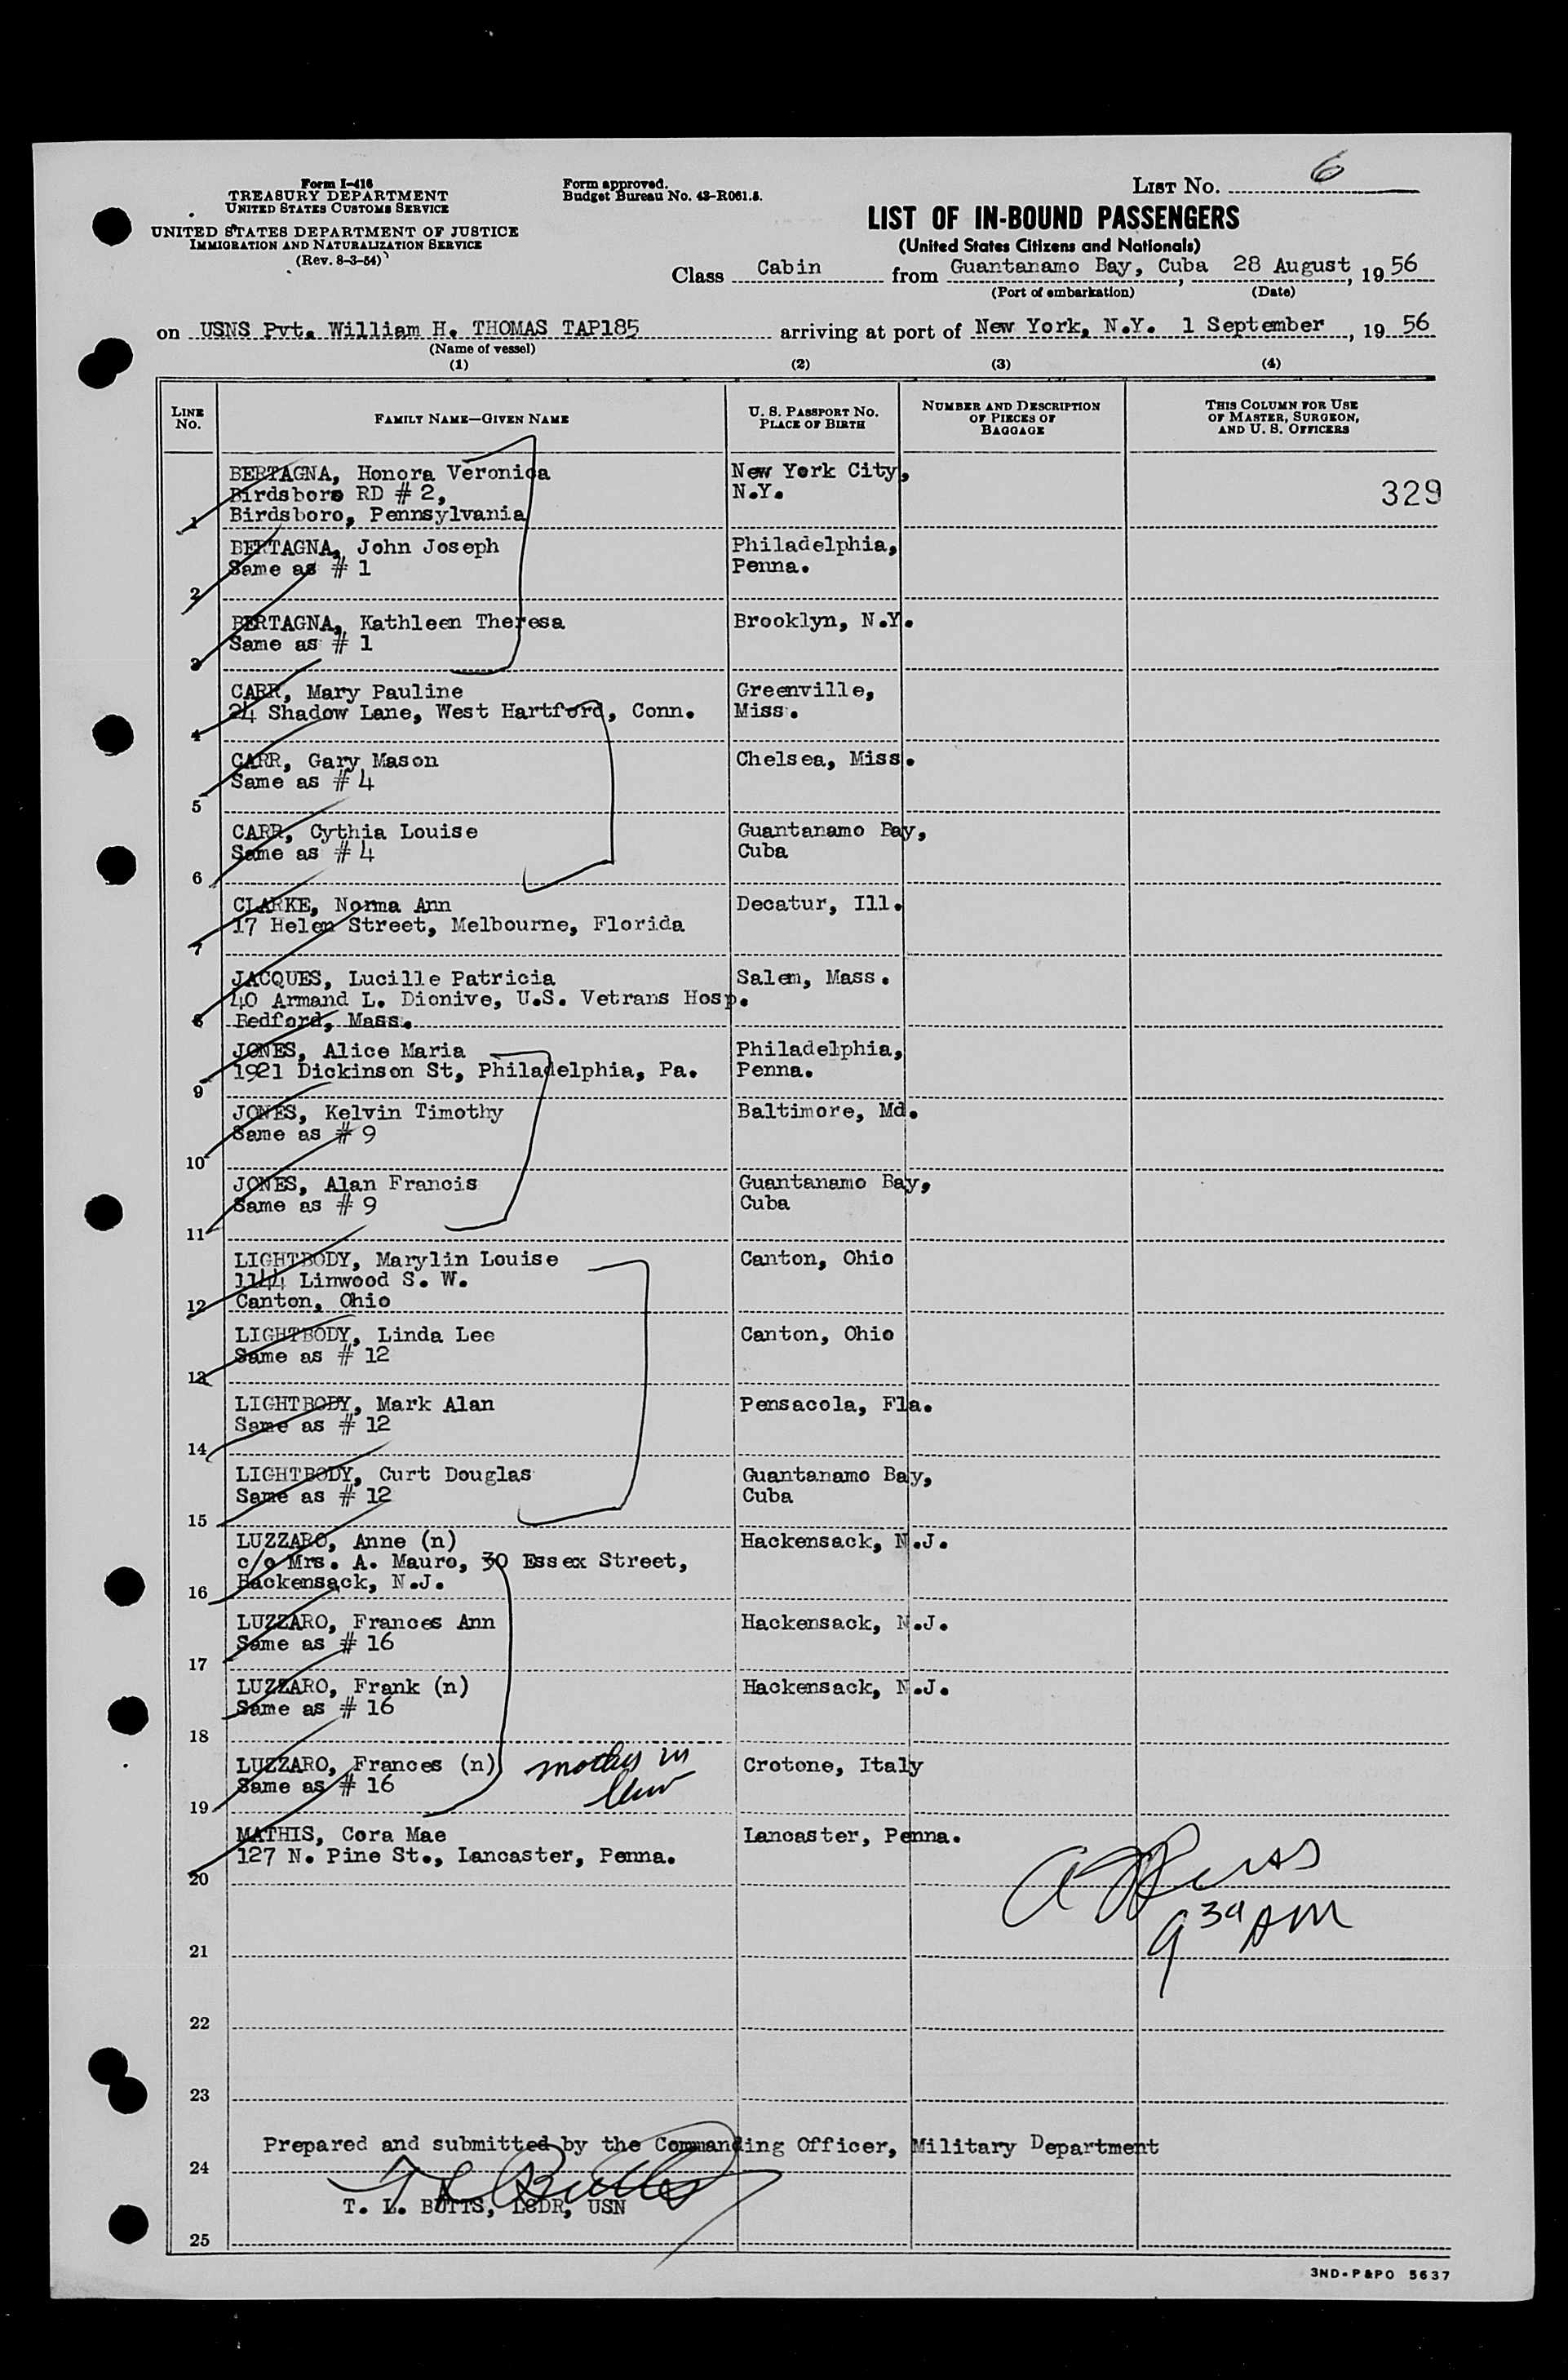 Form I-416
TREASURY DEPARTMENT
UNITED STATES CUSTOMS SERVICE
UNITED STATES DEPARTMENT OF JUSTICE
IMMIGRATION AND NATURALIZATION SERVICE
(Rev. 8-3-54)
Form approved.
Budget Bureau No. 43-R061.5.
LIST No. 6
LIST OF IN-BOUND PASSENGERS
(United States Citizens and Nationals)
Class Cabin from Guantanamo Bay, Cuba 28 August, 1956
(Port of embarkation) (Date)
on USNS Pvt. William H. THOMAS TAP185 arriving at port of New York, N.Y. 1 September, 1956
(Name of vessel)
(1) (2) (3) (4)
LINE No.
FAMILY NAME—GIVEN NAME
U. S. PASSPORT NO.
PLACE OF BIRTH
NUMBER AND DESCRIPTION
OF PIECES OF
BAGGAGE
THIS COLUMN FOR USE
OF MASTER, SURGEON,
AND U. S. OFFICERS
BERTAGNA, Honora Veronica New York City,
Birdsboro RD # 2, N.Y. 329
1 Birdsboro, Pennsylvania
BERTAGNA, John Joseph Philadelphia,
Same as # 1 Penna.
2
BERTAGNA, Kathleen Theresa Brooklyn, N.Y.
Same as # 1
3
CARR, Mary Pauline Greenville,
24 Shadow Lane, West Hartford, Conn. Miss.
4
CARR, Gary Mason Chelsea, Miss.
Same as # 4
5
CARR, Cythia Louise Guantanamo Bay,
Same as # 4 Cuba
6
CLARKE, Norma Ann Decatur, Ill.
17 Helen Street, Melbourne, Florida
7
JACQUES, Lucille Patricia Salem, Mass.
40 Armand L. Dionive, U.S. Vetrans Hosp.
8 Bedford, Mass.
JONES, Alice Maria Philadelphia,
1921 Dickinson St, Philadelphia, Pa. Penna.
9
JONES, Kelvin Timothy Baltimore, Md.
Same as # 9
10
JONES, Alan Francis Guantanamo Bay,
Same as # 9 Cuba
11
LIGHTBODY, Marylin Louise Canton, Ohio
1144 Linwood S. W.
12 Canton, Ohio
LIGHTBODY, Linda Lee Canton, Ohio
Same as # 12
13
LIGHTBODY, Mark Alan Pensacola, Fla.
Same as # 12
14
LIGHTBODY, Curt Douglas Guantanamo Bay,
Same as # 12 Cuba
15
LUZZARO, Anne (n) Hackensack, N.J.
c/o Mrs. A. Mauro, 30 Essex Street,
16 Hackensack, N.J.
LUZZARO, Frances Ann Hackensack, N.J.
Same as # 16
17
LUZZARO, Frank (n) Hackensack, N.J.
Same as # 16
18
LUZZARO, Frances (n) mother in Crotone, Italy
Same as # 16 law
19
MATHIS, Cora Mae Lancaster, Penna.
127 N. Pine St., Lancaster, Penna.
20
9 30 AM
21
22
23
Prepared and submitted by the Commanding Officer, Military Department
24
T. L. BUTTS, LCDR, USN
25
3ND-P&PO 5637